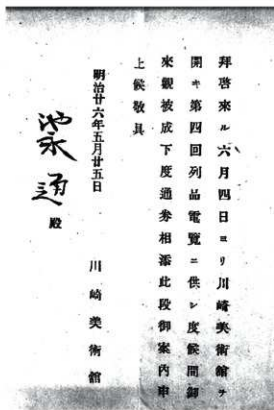 拜啓來ル六月四日ヨリ川崎美術館ヲ
開キ第四回列品電覽ニ供シ度候間御
來觀被成下度通劵相添此段御案內申
上候敬具
明治廿六年五月廿五日
川崎美術館
池永通殿